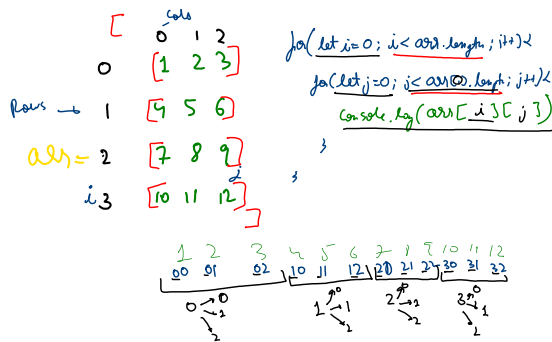 [ Cols
0 1 2
0 [1 2 3]
Rows → 1 [4 5 6]
arr = 2 [7 8 9]
j
i 3 [10 11 12]
]
for(let i=0; i<arr.length; i++){
for(let j=0; j<arr[0].length; j++){
console.log(arr[i][j])
}
}
1 2 3 4 5 6 7 8 9 10 11 12
00 01 02 10 11 12 20 21 22 30 31 32
0 → 0 1 → 0 2 → 0 3 → 0
→ 1 → 1 → 1 → 1
→ 2 → 2 → 2 → 2